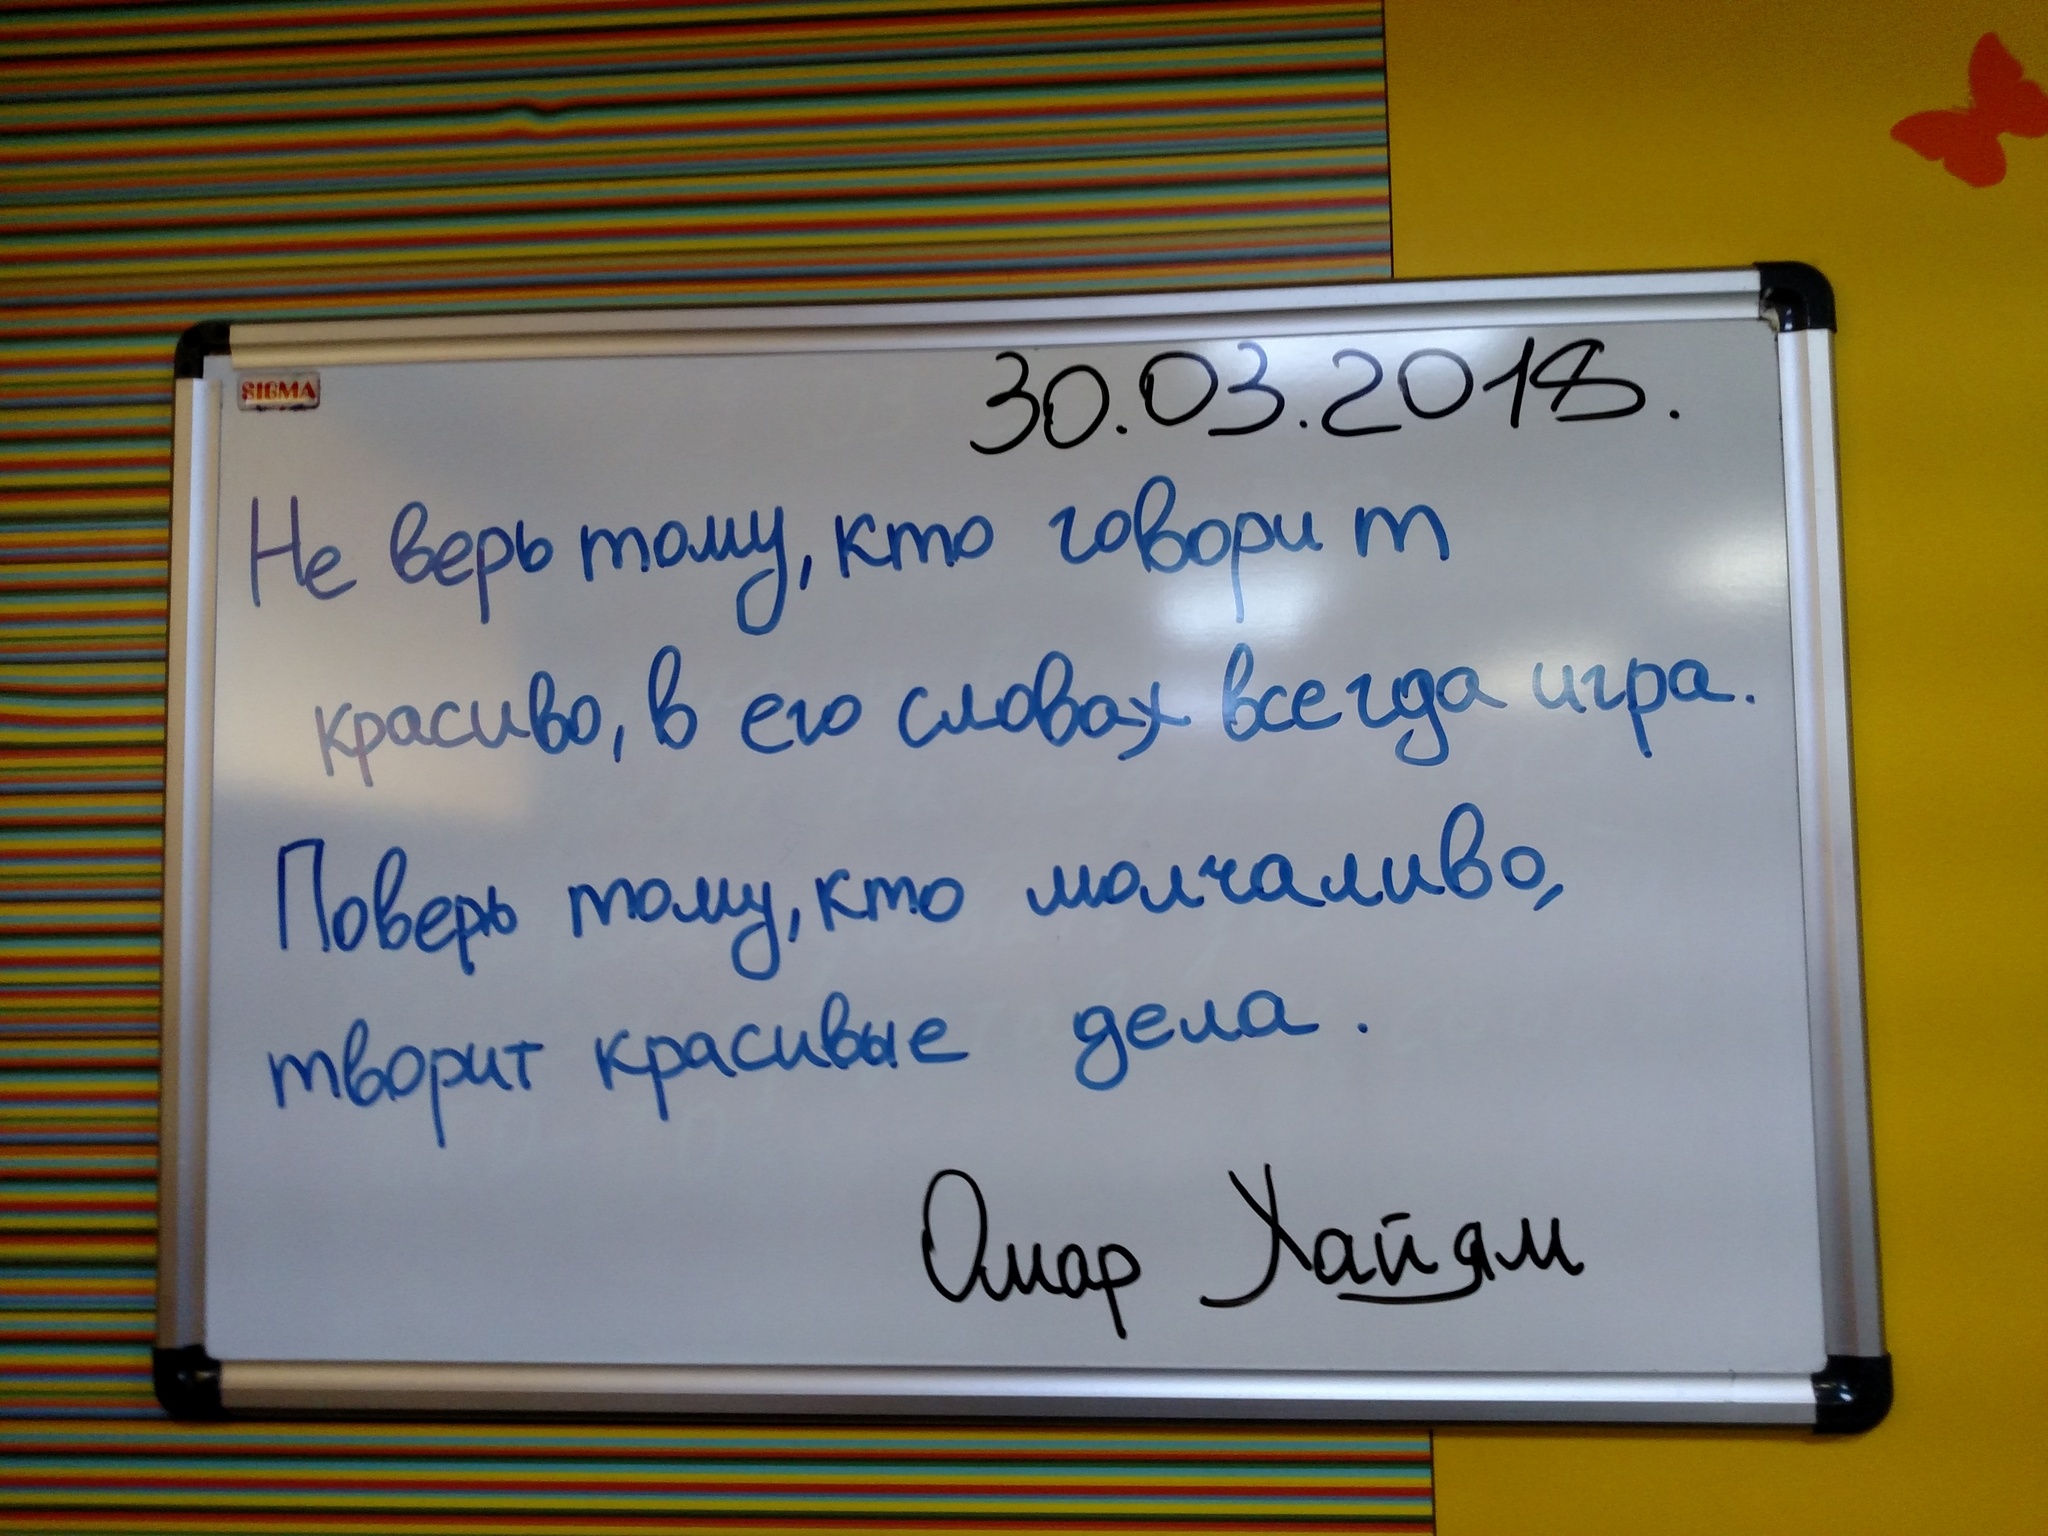 SIGMA
30.03.2018.
Не верь тому, кто говорит
красиво, в его словах всегда игра.
Поверь тому, кто молчаливо,
творит красивые дела.
Омар Хайям